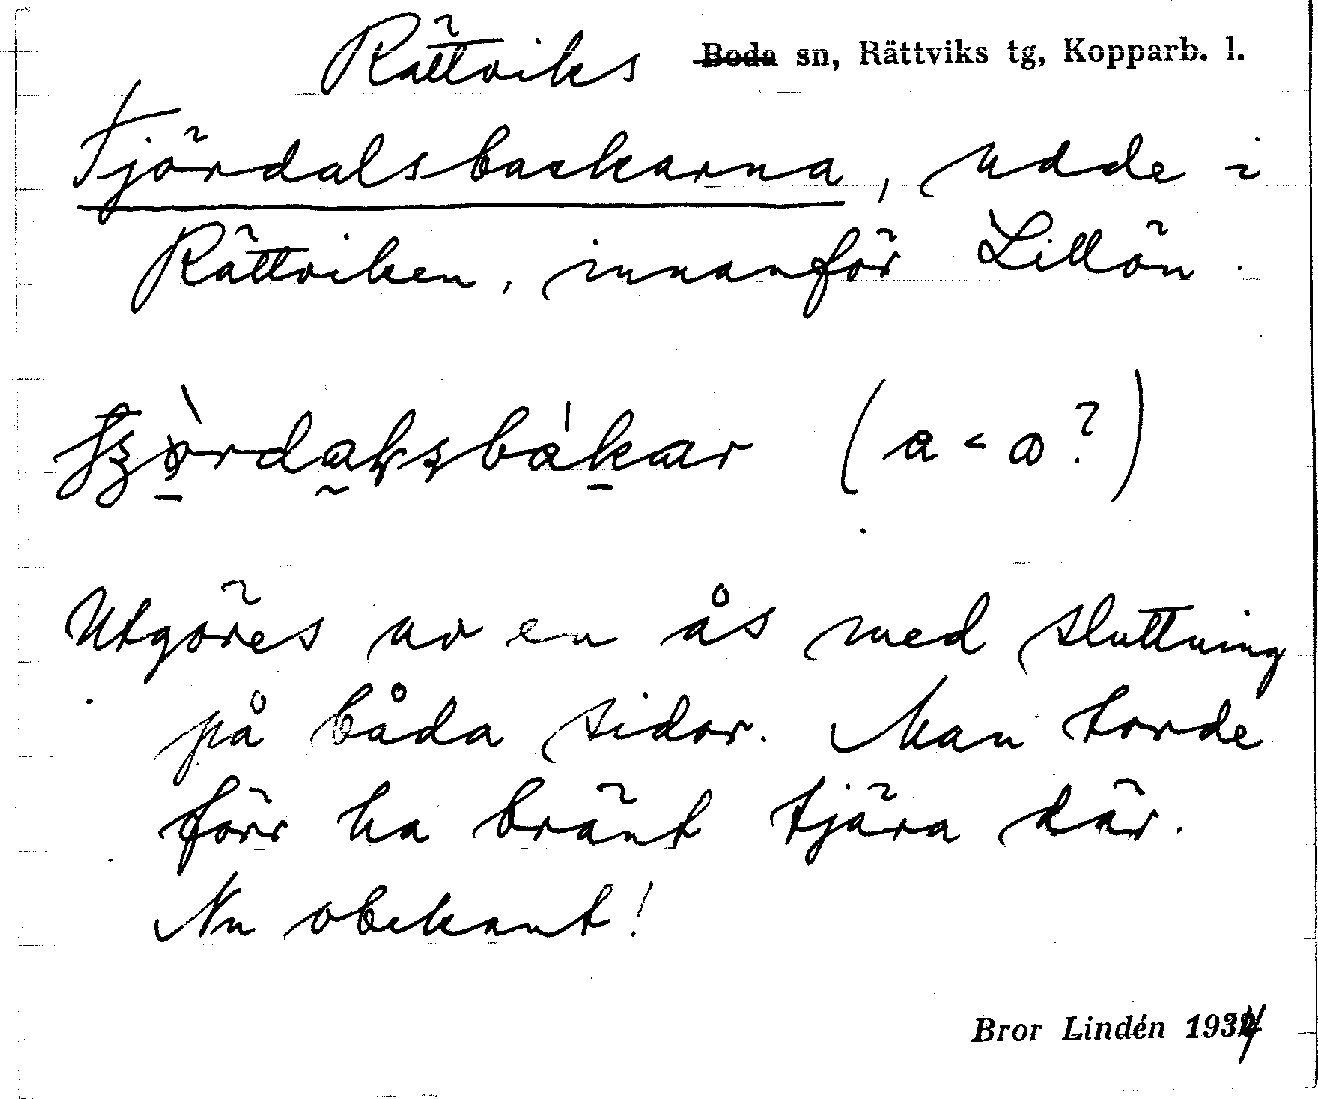 Rättviks Boda sn, Rättviks tg, Kopparb. l.
Fjördalsbackarna, udde i
Rättviken, innanför Lillön.
(a < a?)
Utgöres av en ås med sluttning
på båda sidor. Man torde
förr ha bränt tjära där.
Nu obekant!
Bror Lindén 1934